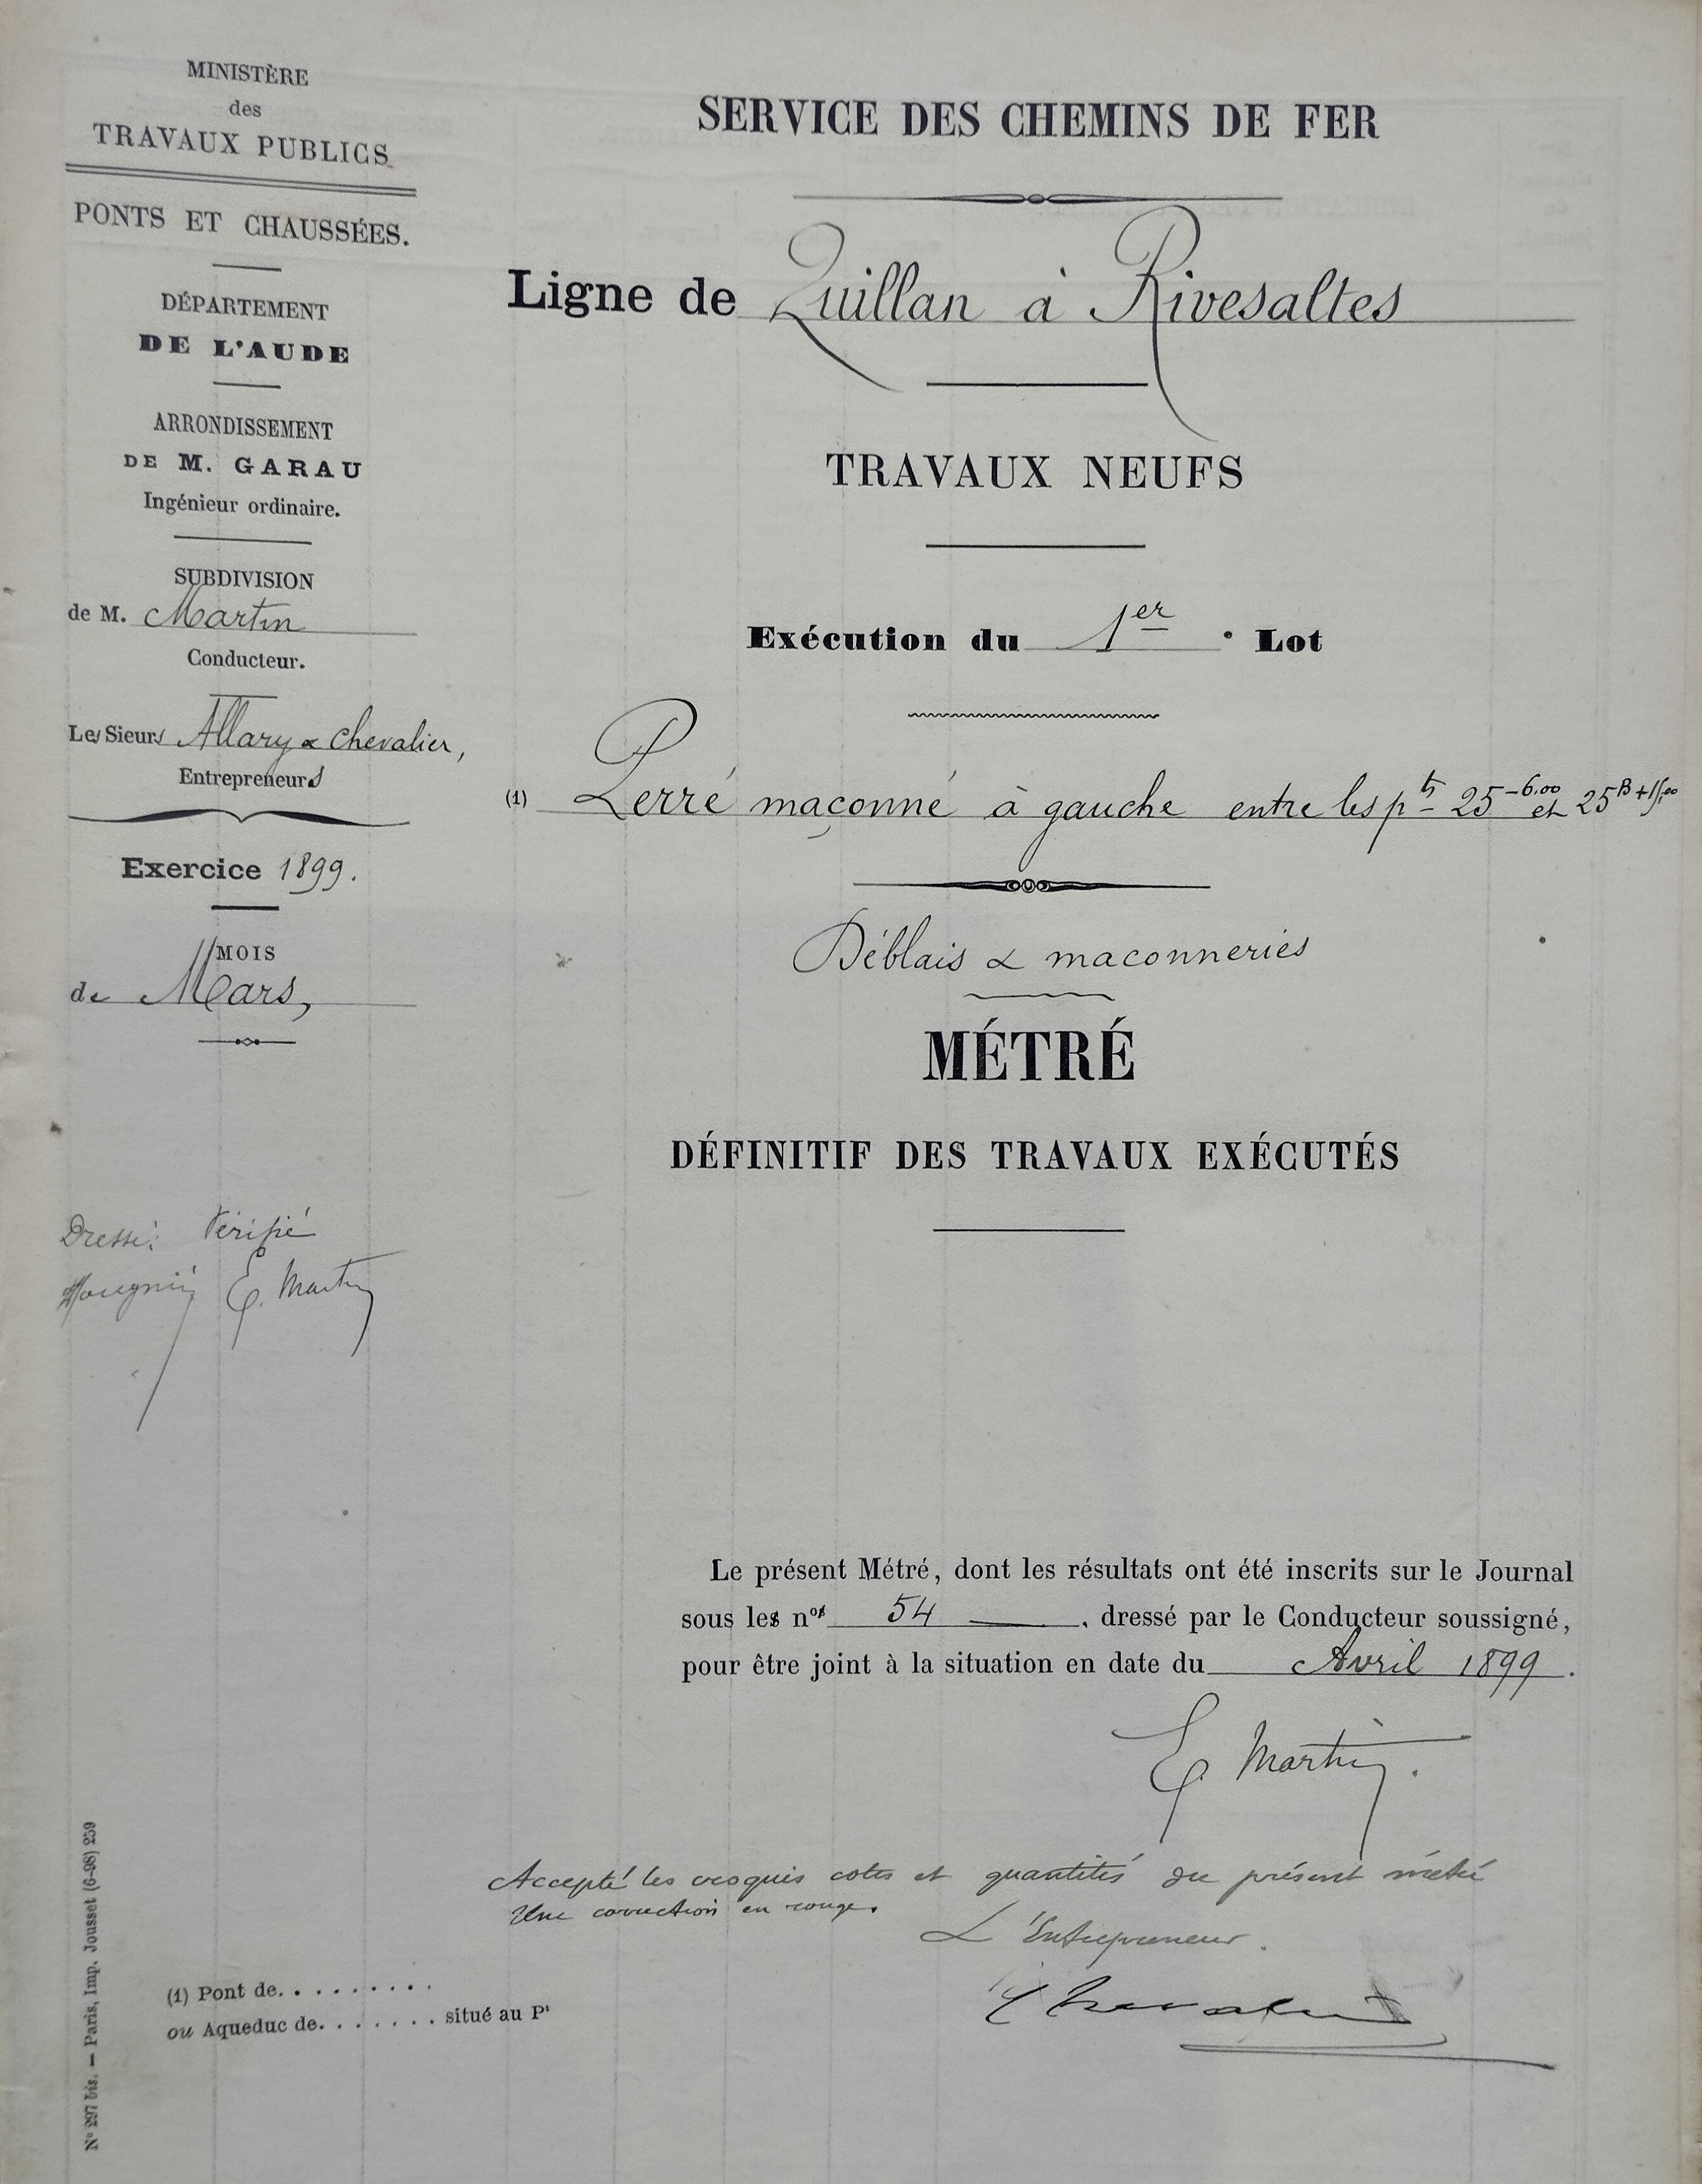 MINISTÈRE
des
TRAVAUX PUBLICS
PONTS ET CHAUSSÉES.
DÉPARTEMENT
DE L'AUDE
ARRONDISSEMENT
DE M. GARAU
Ingénieur ordinaire.
SUBDIVISION
de M. Martin
Conducteur.
Les Sieurs Allary & Chevalier,
Entrepreneurs
Exercice 1899.
MOIS
de Mars,
Dressé: Vérifié
E. Martin
SERVICE DES CHEMINS DE FER
Ligne de Quillan à Rivesaltes
TRAVAUX NEUFS
Exécution du 1er Lot
(1) Perré maçonné à gauche entre les pts 25 -6.00 et 25B
Déblais & maconneries
MÉTRÉ
DÉFINITIF DES TRAVAUX EXÉCUTÉS
Le présent Métré, dont les résultats ont été inscrits sur le Journal
sous les nos 54, dressé par le Conducteur soussigné,
pour être joint à la situation en date du Avril 1899.
E. Martin.
Accepté les croquis cotes et quantités du présent métré
Une correction en rouge.
L'Entrepreneur.
Chevalier
(1) Pont de. . . . . . . . .
ou Aqueduc de. . . . . . . situé au Pt
N° 297 bis. — Paris, Imp. Jousset (6-98) 259